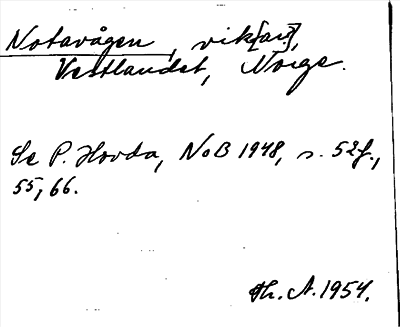 Notavågen, vik[ar],
Vestlandet, Norge.
Se P. Hovda, NoB 1948, s. 52f.,
55, 66.
Th. A. 1954.